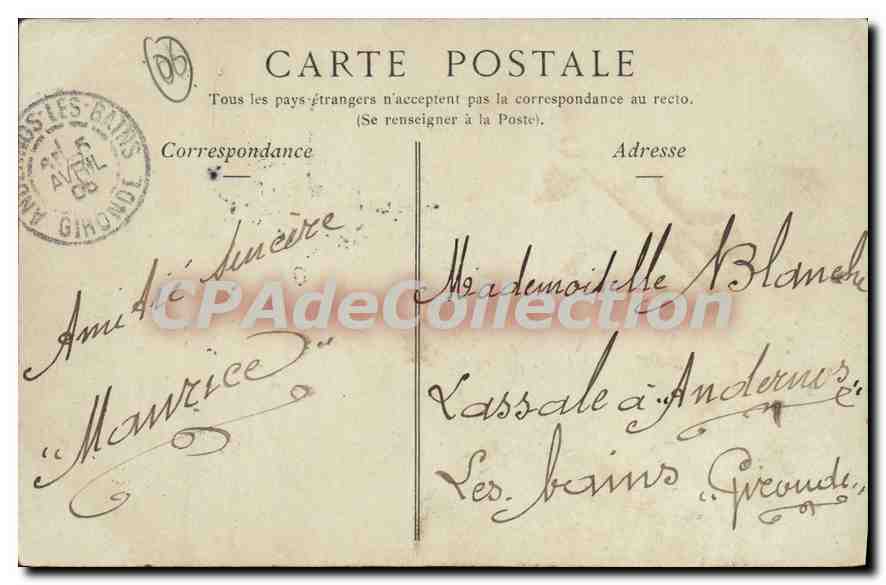 06
CARTE POSTALE
Tous les pays étrangers n'acceptent pas la correspondance au recto.
(Se renseigner à la Poste).
Correspondance
Adresse
ANDERNOS-LES-BAINS
AVRIL
GIRONDE
Amitié Sincère
"Maurice"
Mademoiselle Blanche
Lassale à "Andernos"
Les bains "Gironde"
CPAdeCollection